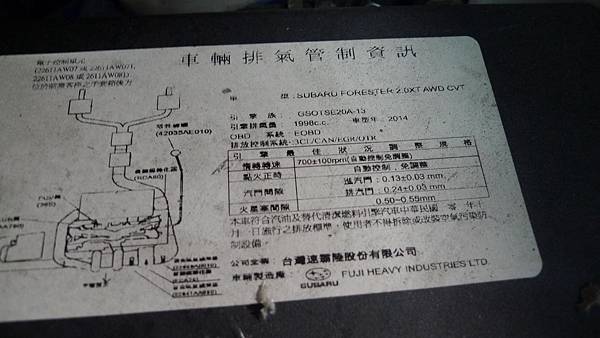 車輛排氣管制資訊
電子控制單元
(22611AW07 或 22611AW071,
22611AW08 或 2611AW081)
位於前乘客座之手套箱後方
車 型:SUBARU FORESTER 2.0XT AWD CVT
引擎族:GSOTSE20A-13
引擎排氣量:1998c.c. 車型年:2014
OBD 系統:EOBD
排放控制系統:3CL/CAN/EGR/OTR
引擎最佳狀況調整規格
惰轉轉速 700±100rpm(自動控制免調整)
點火正時 自動控制,免調整
汽門間隙 進汽門:0.13±0.03 mm
排汽門:0.24±0.03 mm
火星塞間隙 0.50~0.55mm
本車符合汽油及替代清潔燃料引擎汽車中華民國 零一年十
月一日施行之排放標準,使用者不得拆除或改裝空氣污染防
制設備。
公司全名 台灣速霸陸股份有限公司
車輛製造廠 SUBARU FUJI HEAVY INDUSTRIES LTD.
活性碳罐
(42035AE010)